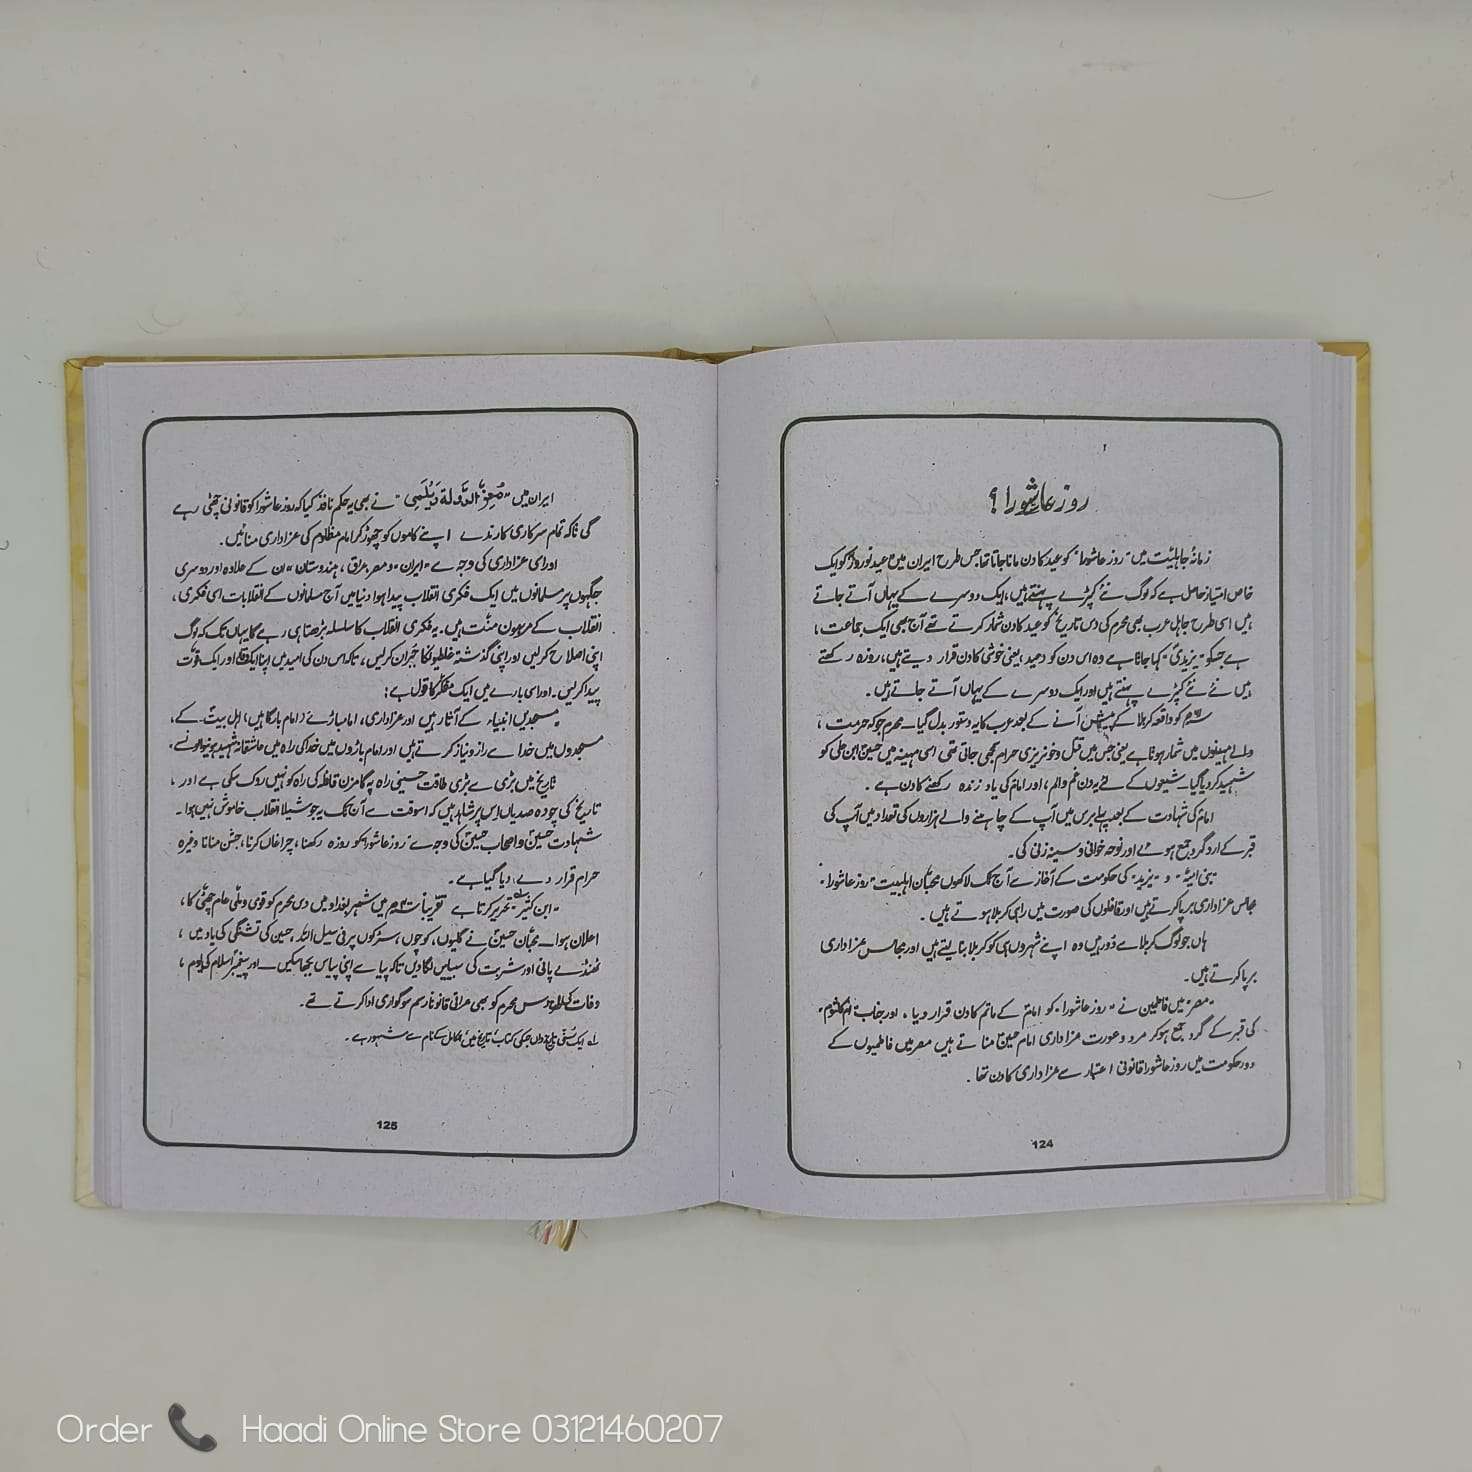 روز عاشورا؟
زمانۂ جاہلیت میں "روز عاشورا" کو عید کا دن مانا جاتا تھا جس طرح ایران میں "عید نوروز" کو ایک
خاص امتیاز حاصل ہے کہ لوگ نئے کپڑے پہنتے ہیں، ایک دوسرے کے یہاں آتے جاتے
ہیں اسی طرح جاہل عرب بھی محرم کی دس تاریخ کو عید کا دن شمار کرتے تھے آج بھی ایک جماعت،
ہے جسکو "یزیدی" کہا جاتا ہے وہ اس دن کو عید، یعنی خوشی کا دن قرار دیتے ہیں، روزہ رکھتے
ہیں نئے نئے کپڑے پہنتے ہیں اور ایک دوسرے کے یہاں آتے جاتے ہیں۔
کو واقعہ کربلا کے پیش آنے کے بعد عرب کا یہ دستور بدل گیا۔ محرم جو کہ حرمت،
والے مہینوں میں شمار ہوتا ہے یعنی جس میں قتل و خونریزی حرام سمجھی جاتی تھی اسی مہینہ میں حسین ابن علی کو
شہید کر دیا گیا۔ شیعوں کے لئے یہ دن غم و الم، اور امام کی یاد زندہ رکھنے کا دن ہے۔
امام کی شہادت کے بعد پہلے برس میں آپ کے چاہنے والے ہزاروں کی تعداد میں آپ کی
قبر کے ارد گرد جمع ہوئے اور نوحہ خوانی و سینہ زنی کی۔
"بنی امیہ" و "یزید" کی حکومت کے آغاز سے آج تک لاکھوں محبان اہلبیت "روز عاشورا"
مجالس عزاداری برپا کرتے ہیں اور قافلوں کی صورت میں راہی کربلا ہوتے ہیں۔
ہاں جو لوگ کربلا سے دور ہیں وہ اپنے شہروں ہی کو کربلا بنا لیتے ہیں اور مجالس عزاداری
برپا کرتے ہیں۔
"مصر" میں فاطمین نے "روز عاشورا" کو امام کے ماتم کا دن قرار دیا، اور جناب ام کلثوم
کی قبر کے گرد جمع ہو کر مرد و عورت عزاداری امام حسین مناتے ہیں مصر میں فاطمیوں کے
دور حکومت میں روز عاشورا قانونی اعتبار سے عزاداری کا دن تھا۔
124
ایران میں "مُعِزُّ الدَّولة دَیْلَمِی" نے بھی یہ حکم نافذ کیا کہ روز عاشورا کو قانونی چھٹی رہے
گی تاکہ تمام سرکاری کارندے اپنے کاموں کو چھوڑ کر امام مظلوم کی عزاداری منائیں۔
اور اسی عزاداری کی وجہ سے "ایران" و مصر، عراق، ہندوستان "ان کے علاوہ اور دوسری
جگہوں پر مسلمانوں میں ایک فکری انقلاب پیدا ہوا دنیا میں آج مسلمانوں کے انقلابات اسی فکری،
انقلاب کے مرہون منت ہیں۔ یہ فکری انقلاب کا سلسلہ بڑھتا ہی رہے گا یہاں تک کہ لوگ
اپنی اصلاح کر لیں اور اپنی گذشتہ غلطیوں کا جبران کر لیں، تاکہ اس دن کی امید میں اپنا ایک اور ایک قوت
پیدا کر لیں۔ اور اسی بارے میں ایک مفکر کا قول ہے:
"مسجدیں انبیاء کے آثار ہیں اور عزاداری، امامباڑے (امام بارگاہیں) اہل بیت کے،
مسجدوں میں خدا سے راز و نیاز کرتے ہیں اور امام باڑوں میں خدا کی راہ میں عاشقانہ شہید ہونیوالوں سے۔
تاریخ میں بڑی سے بڑی طاقت حسینی راہ پہ گامزن قافلہ کی راہ کو نہیں روک سکی ہے اور،
تاریخ کی چودہ صدیاں اس پر شاہد ہیں کہ اسوقت سے آج تک یہ جوشیلا انقلاب خاموش نہیں ہوا۔
شہادت حسین و اصحاب حسین کی وجہ سے "روز عاشورا" کو روزہ رکھنا، چراغاں کرنا، جشن منانا وغیرہ
حرام قرار دے دیا گیا ہے۔
"ابن کثیر" تحریر کرتا ہے تقریباً میں شہر بغداد میں دس محرم کو قومی و ملی عام چھٹی کا،
اعلان ہوا۔ محبان حسین نے گلیوں، کوچوں، سڑکوں پر فی سبیل اللہ، حسین کی تشنگی کی یاد میں،
ٹھنڈے پانی اور شربت کی سبیلیں لگا دیں تاکہ پیاسے اپنی پیاس بجھا سکیں۔ اور پیغمبر اسلام کی یوم،
وفات کی طرح دس محرم کو بھی عراقی قانوناً رسم سوگواری ادا کرتے تھے۔
ایک سنی تاریخ داں جسکی کتاب تاریخ میں الکامل کے نام سے مشہور ہے۔
125
Order Haadi Online Store 03121460207